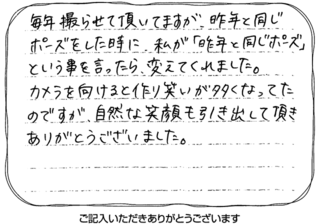 毎年撮らせて頂いてますが、昨年と同じ
ポーズをした時に、私が「昨年と同じポーズ」
という事を言ったら、変えてくれました。
カメラを向けると作り笑いが多くなってた
のですが、自然な笑顔も引き出して頂き
ありがとうございました。
ご記入いただきありがとうございます